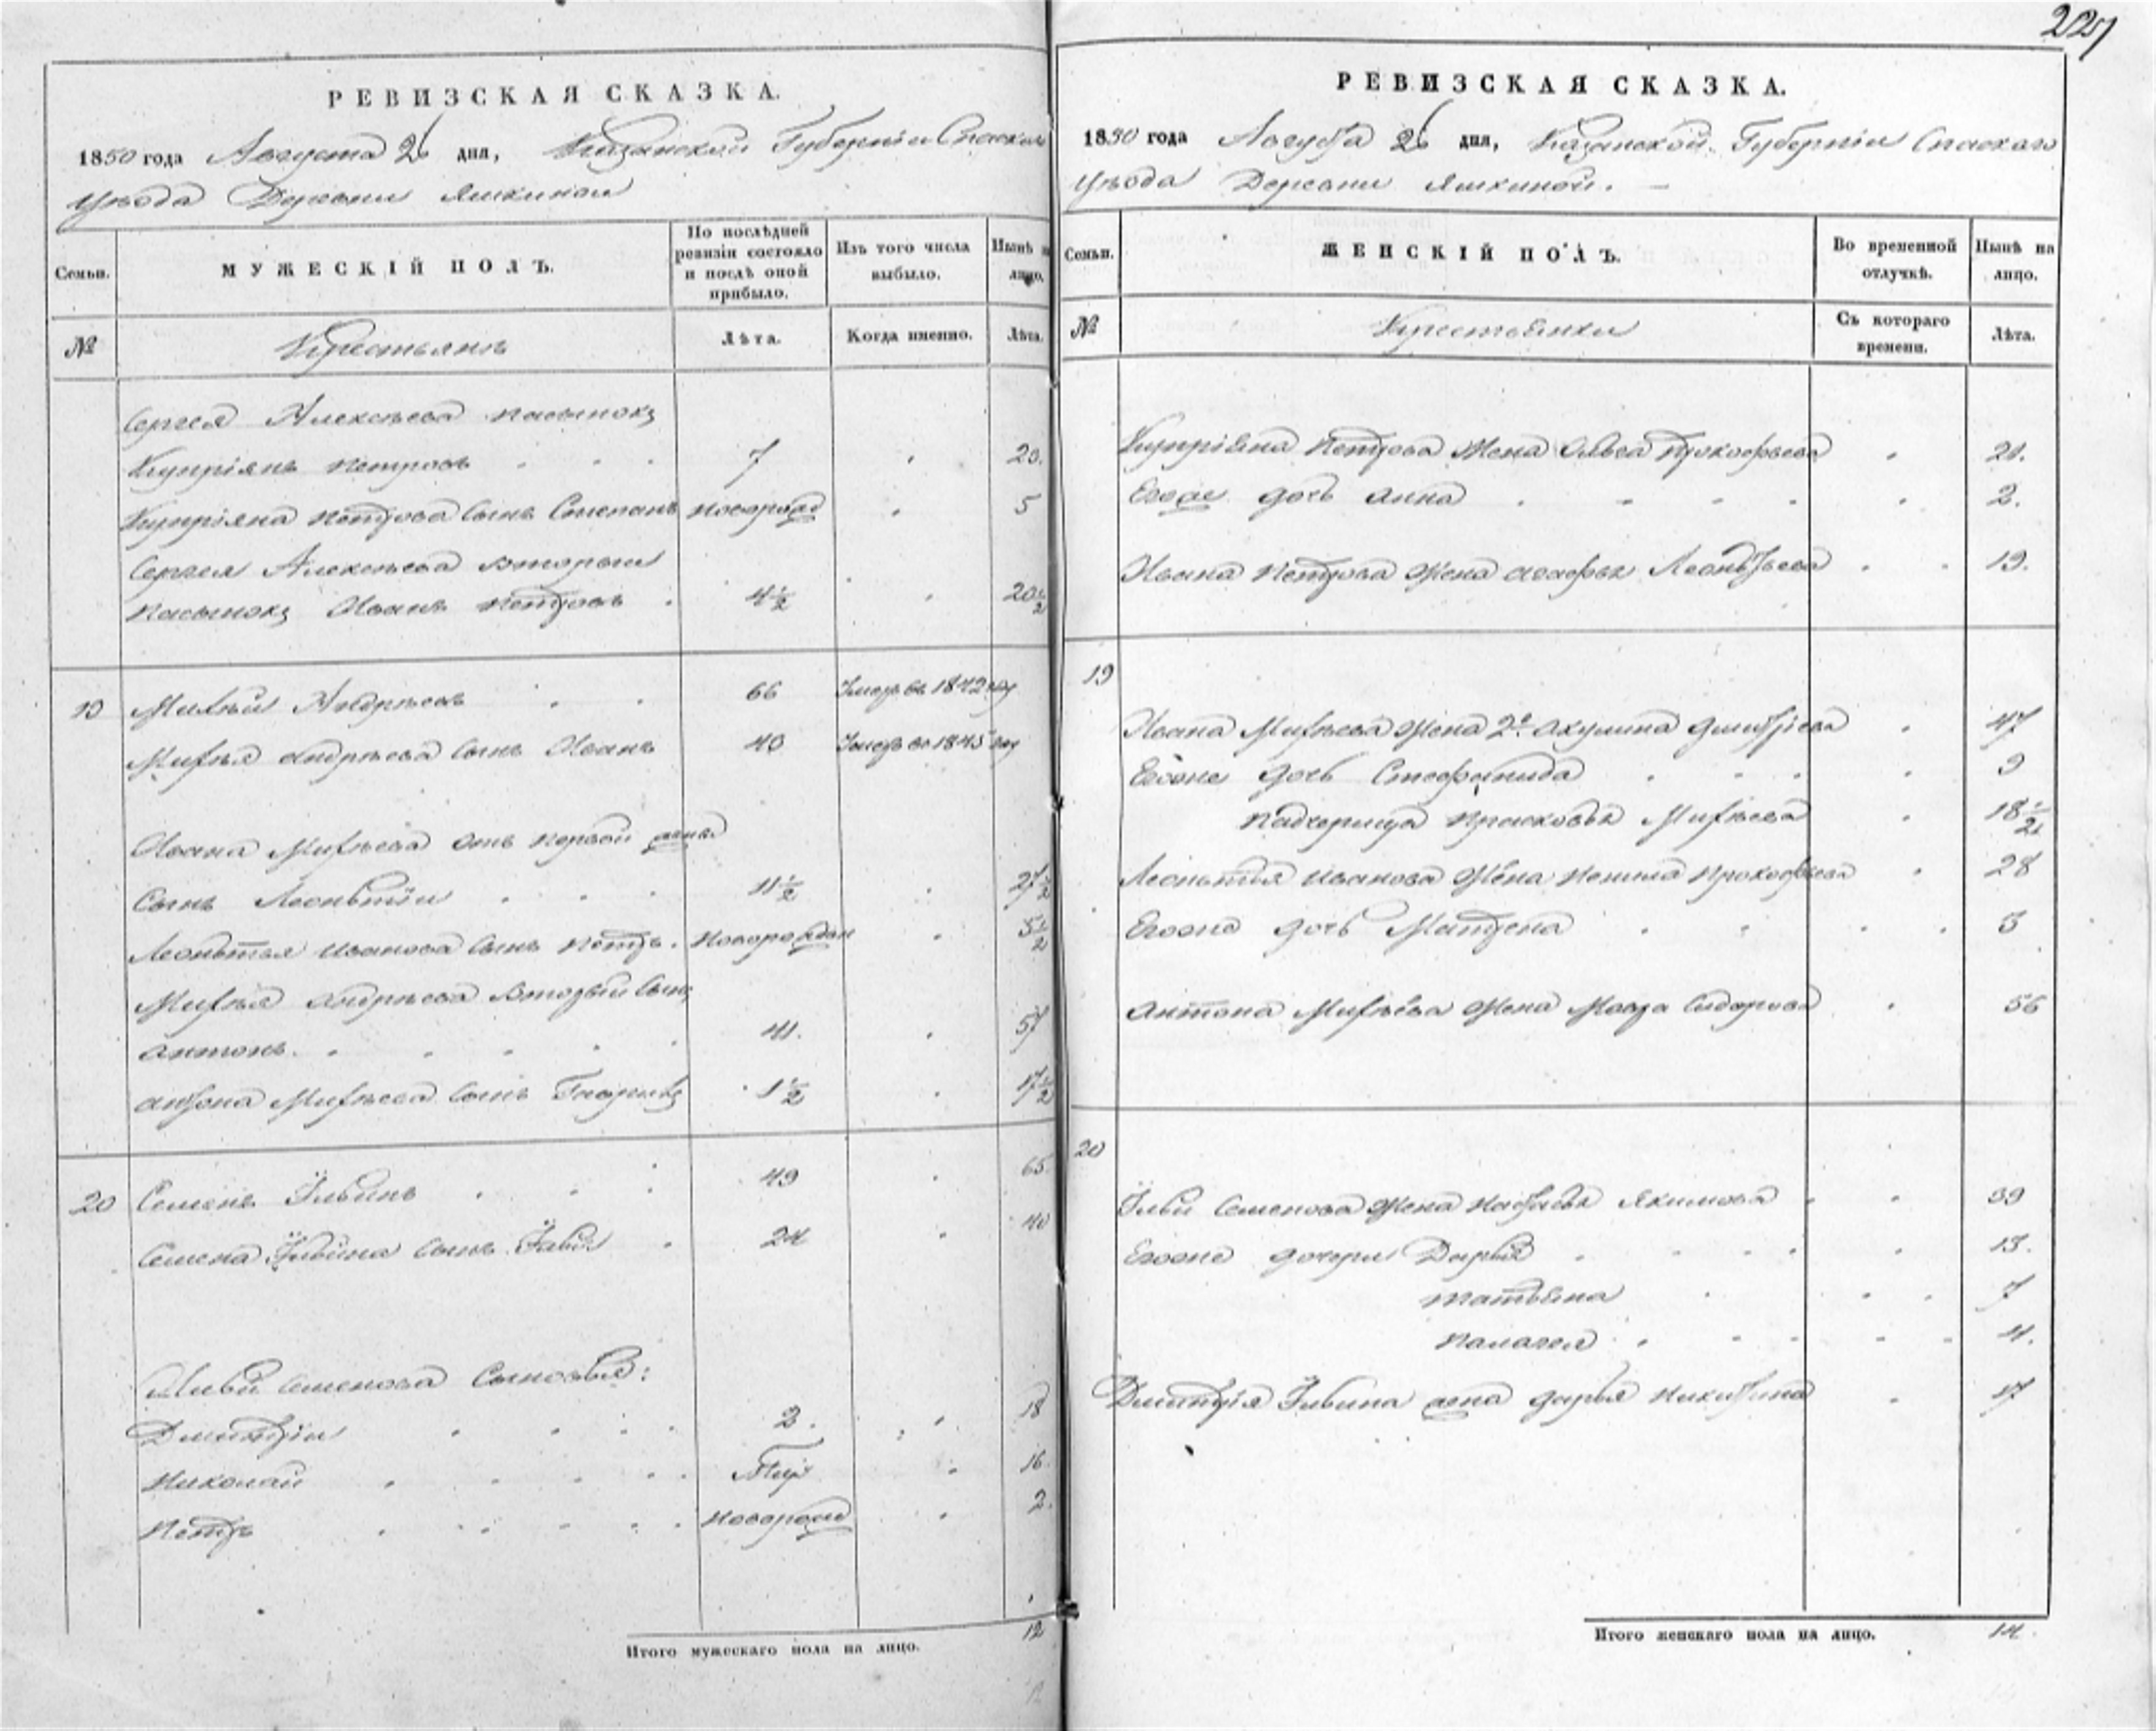 221
РЕВИЗСКАЯ СКАЗКА.
1850 года Августа 26 дня, Казанской Губерніи Спаскаго
уѣзда Деревни Яшкиной
Семьи.
МУЖЕСКІЙ ПОЛЪ.
По послѣдней ревизіи состояло и послѣ оной прибыло.
Изъ того числа выбыло.
Нынѣ на лицо.
№
Крестьянъ
Лѣта.
Когда именно.
Лѣта.
Сергея Алексѣева пасынокъ
Купріянъ Петровъ 7 23.
Купріяна Петрова сынъ Степанъ новорожд 5
Сергея Алексѣева вторый
пасынокъ Иванъ Петровъ 4½ 20½
19 Михѣй Андрѣевъ 66 Умеръ въ 1842 году
Михѣя Андрѣева сынъ Иванъ 40 Умеръ въ 1845 году
Ивана Михѣева отъ первой жены
сынъ Леонтій 11½ 27½
Леонтья Иванова сынъ Петръ. новорожден 5½
Михѣя Андрѣева вторый сынъ
Антонъ. 41. 57
Антона Михѣева сынъ 1½ 17½
20 Семенъ Ильинъ 49 65
Семена Ильина сынъ Илья 24 40
Ильи Семенова сыновья:
Дмитрій 2. 18
Николай 16
Петръ новорожд 2.
Итого мужескаго пола на лицо. 12
РЕВИЗСКАЯ СКАЗКА.
1850 года Августа 26 дня, Казанской Губерніи Спаскаго
уѣзда Деревни Яшкиной.
Семьи.
ЖЕНСКІЙ ПОЛЪ.
Во временной отлучкѣ.
Нынѣ на лицо.
№
Крестьянки
Съ котораго времени.
Лѣта.
Купріяна Петрова жена Ольга Прокофьева 21.
Егоже дочь Анна 2.
Ивана Петрова жена Агафья Леонтьева 19.
19
Ивана Михѣева жена 2я Акулина Дмитріева 47
Егоже дочь Стефанида 9
падчерица Прасковья Михѣева 18½
Леонтья Иванова жена Прокофьева 28
Егоже дочь Матрена 3
Антона Михѣева жена Мавра Сидорова 56
20
Ильи Семенова жена Настасья Якимова 39
Егоже дочери Дарья 13.
Татьяна 7
Палагея 4.
Дмитрія Ильина жена Дарья Никитина 17
Итого женскаго пола на лицо. 14.